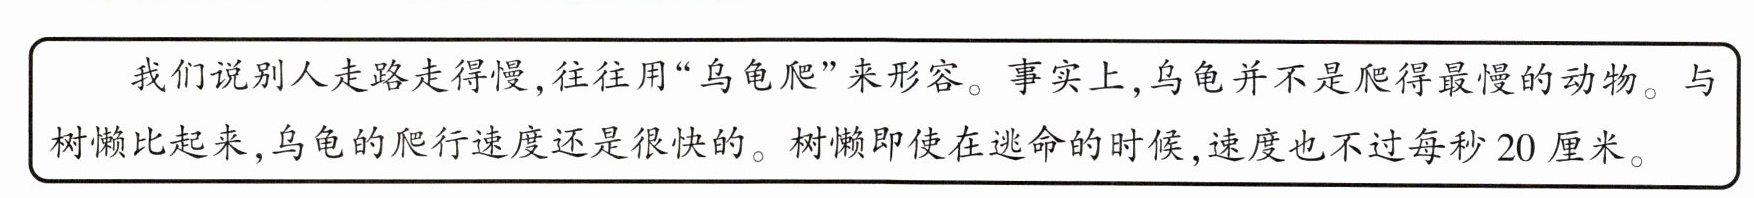 我们说别人走路走得慢,往往用“乌龟爬”来形容。事实上,乌龟并不是爬得最慢的动物。与
树懒比起来,乌龟的爬行速度还是很快的。树懒即使在逃命的时候,速度也不过每秒20厘米。